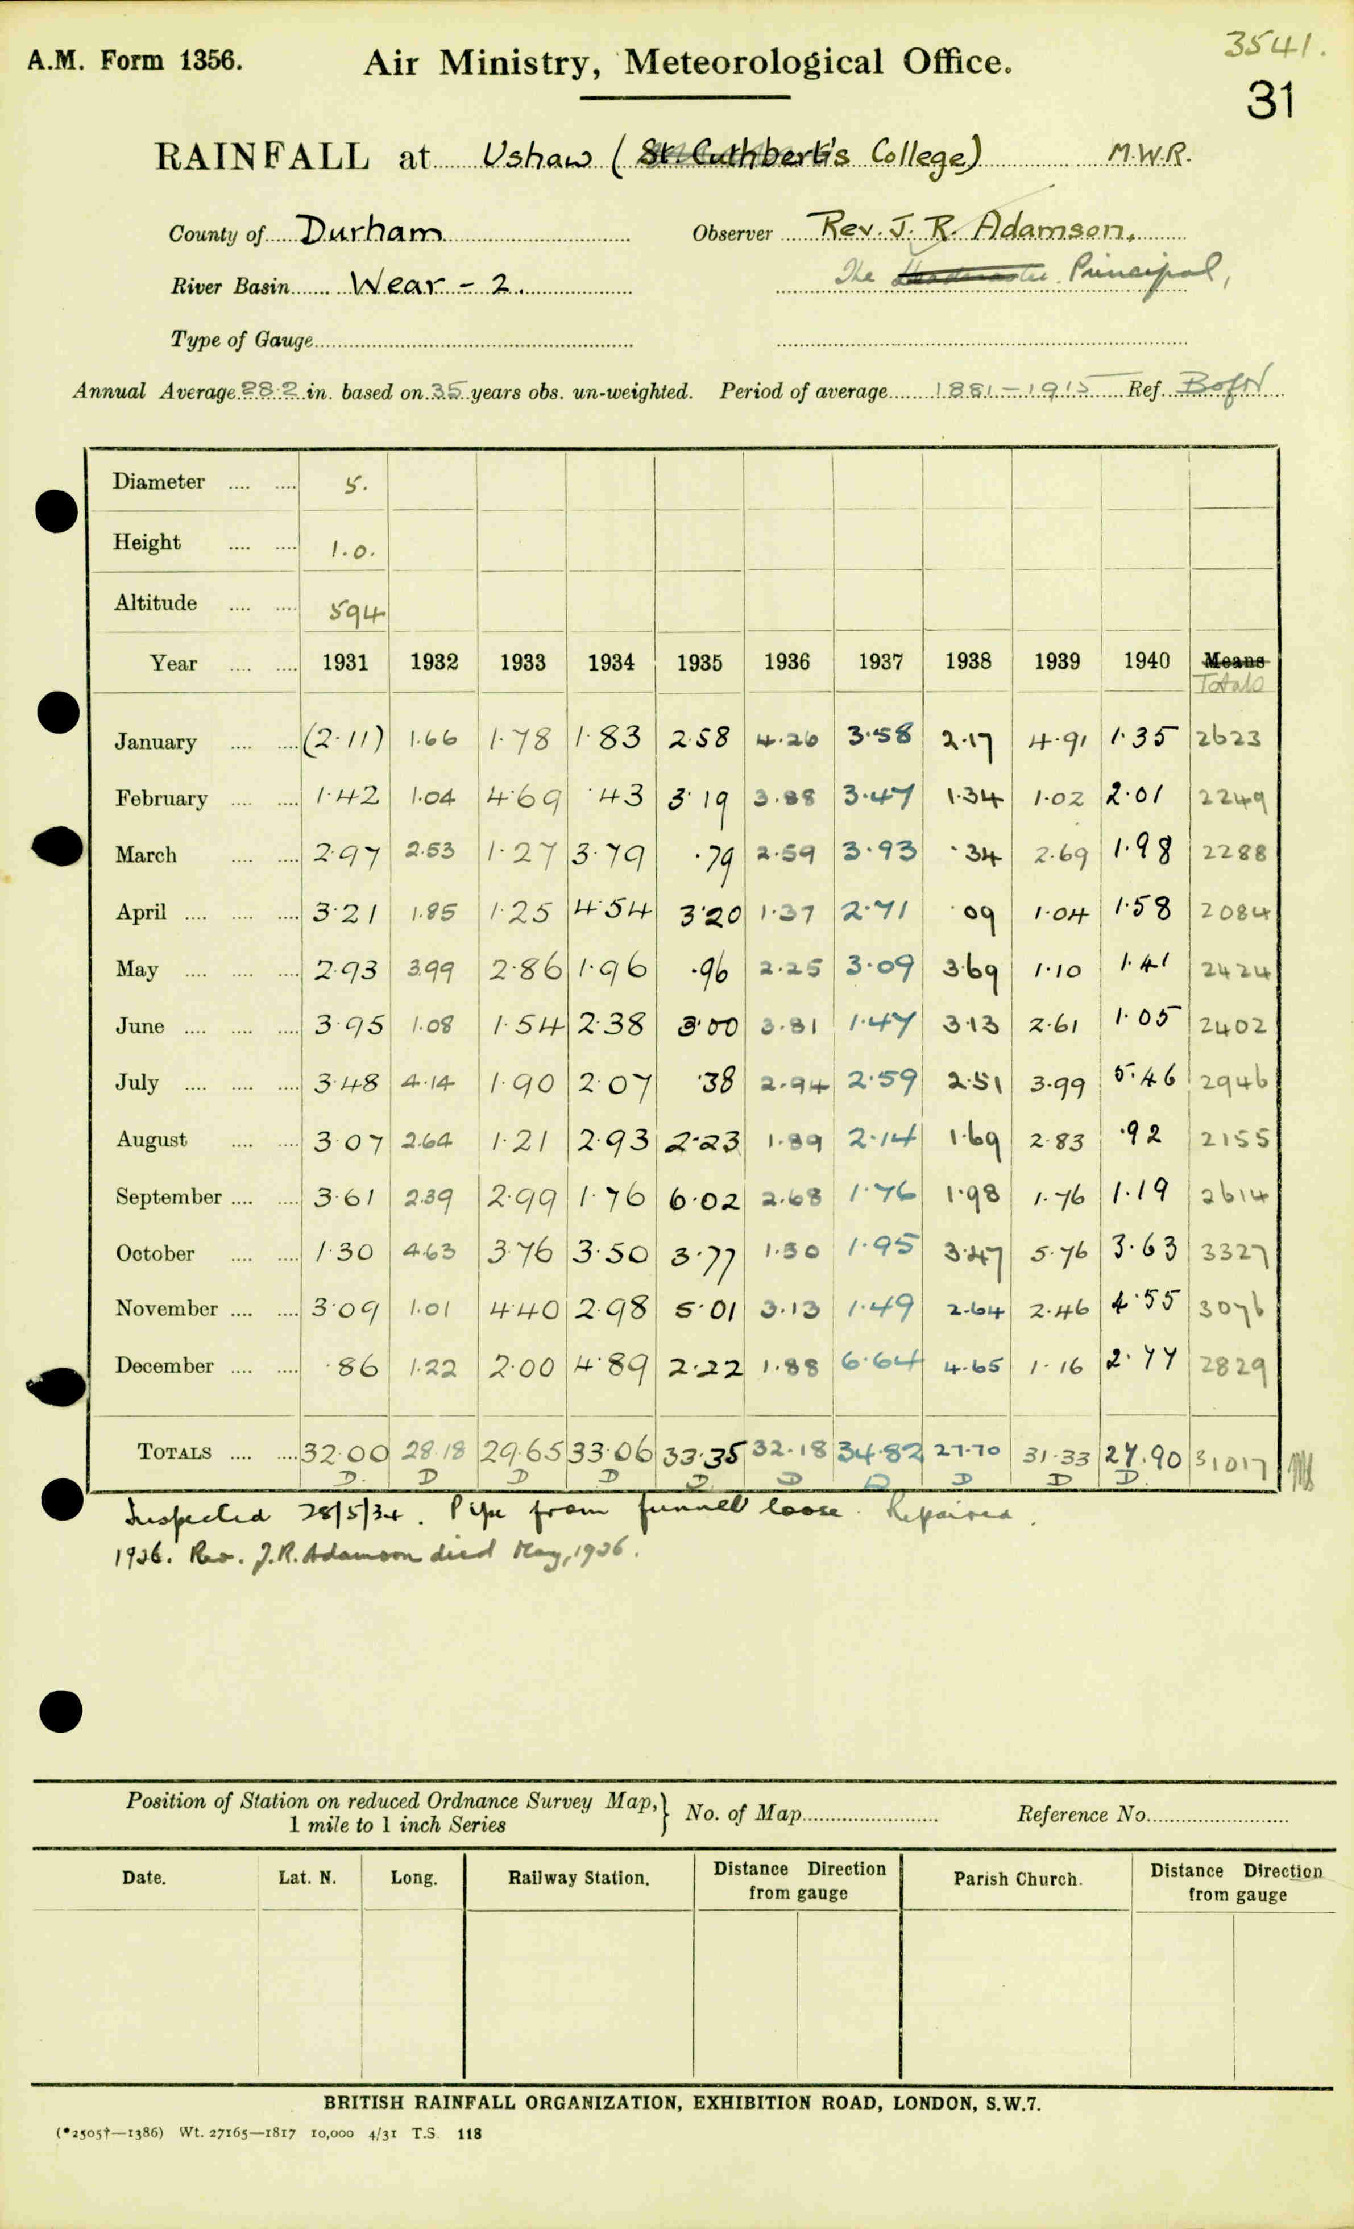 3541.
A.M. Form 1356. Air Ministry, Meteorological Office.
31
RAINFALL at Ushaw (St. Cuthbert's College) M.W.R.
County of Durham Observer Rev. J. R. Adamson,
River Basin Wear - 2. The Principal,
Type of Gauge
Annual Average 28.2 in. based on 35 years obs. un-weighted. Period of average 1881-1915 Ref.
Diameter 5.
Height 1.0.
Altitude 594
Year 1931 1932 1933 1934 1935 1936 1937 1938 1939 1940 Means
Totals
January (2.11) 1.66 1.78 1.83 2.58 4.26 3.58 2.17 4.91 1.35 2623
February 1.42 1.04 4.69 .43 3.19 3.88 3.47 1.34 1.02 2.01 2249
March 2.97 2.53 1.27 3.79 .79 2.59 3.93 .34 2.69 1.98 2288
April 3.21 1.85 1.25 4.54 3.20 1.37 2.71 .09 1.04 1.58 2084
May 2.93 3.99 2.86 1.96 .96 2.25 3.09 3.69 1.10 1.41 2424
June 3.95 1.08 1.54 2.38 3.00 3.81 1.47 3.13 2.61 1.05 2402
July 3.48 4.14 1.90 2.07 .38 2.94 2.59 2.51 3.99 5.46 2946
August 3.07 2.64 1.21 2.93 2.23 1.89 2.14 1.69 2.83 .92 2155
September 3.61 2.39 2.99 1.76 6.02 2.68 1.76 1.98 1.76 1.19 2614
October 1.30 4.63 3.76 3.50 3.77 1.50 1.95 3.47 5.76 3.63 3327
November 3.09 1.01 4.40 2.98 5.01 3.13 1.49 2.64 2.46 4.55 3076
December .86 1.22 2.00 4.89 2.22 1.88 6.64 4.65 1.16 2.77 2829
TOTALS 32.00 28.18 29.65 33.06 33.35 32.18 34.82 27.70 31.33 27.90 31017
D. D D D D D D D D D.
Inspected 28/5/34. Pipe from funnel loose. Repaired.
1936. Rev. J.R. Adamson died May, 1936.
Position of Station on reduced Ordnance Survey Map, } No. of Map Reference No.
1 mile to 1 inch Series
Date. Lat. N. Long. Railway Station. Distance Direction from gauge Parish Church. Distance Direction from gauge
BRITISH RAINFALL ORGANIZATION, EXHIBITION ROAD, LONDON, S.W.7.
(*2505†—1386) Wt. 27165—1817 10,000 4/31 T.S. 118